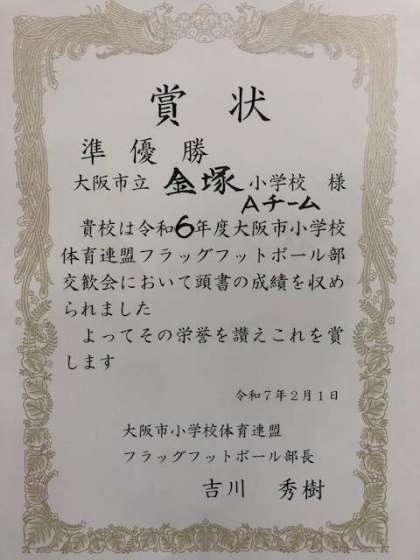 賞状
準優勝
大阪市立 金塚 小学校 様
Aチーム
貴校は令和6年度大阪市小学校
体育連盟フラッグフットボール部
交歓会において頭書の成績を収め
られました
よってその栄誉を讃えこれを賞
します
令和7年2月1日
大阪市小学校体育連盟
フラッグフットボール部長
吉川 秀樹